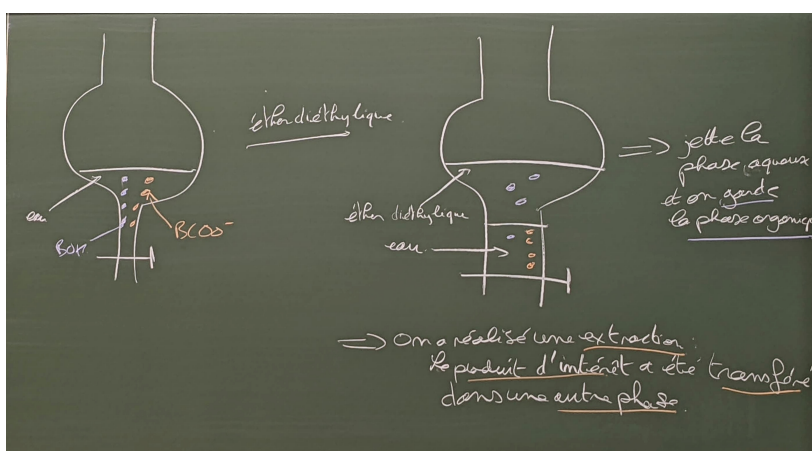 éther diéthylique.
eau
BOH
BCOO⁻
éther diéthylique
eau
=> jette la
phase aqueuse
et on garde
la phase organique
=> On a réalisé une extraction:
le produit d'intérêt a été transféré
dans une autre phase.